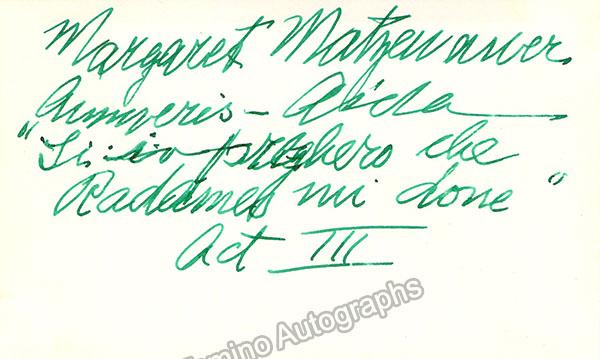 Margaret Matzenauer
Amneris - Aida
"Si: io pregherò che
Radames mi done"
Act III
Tamino Autographs